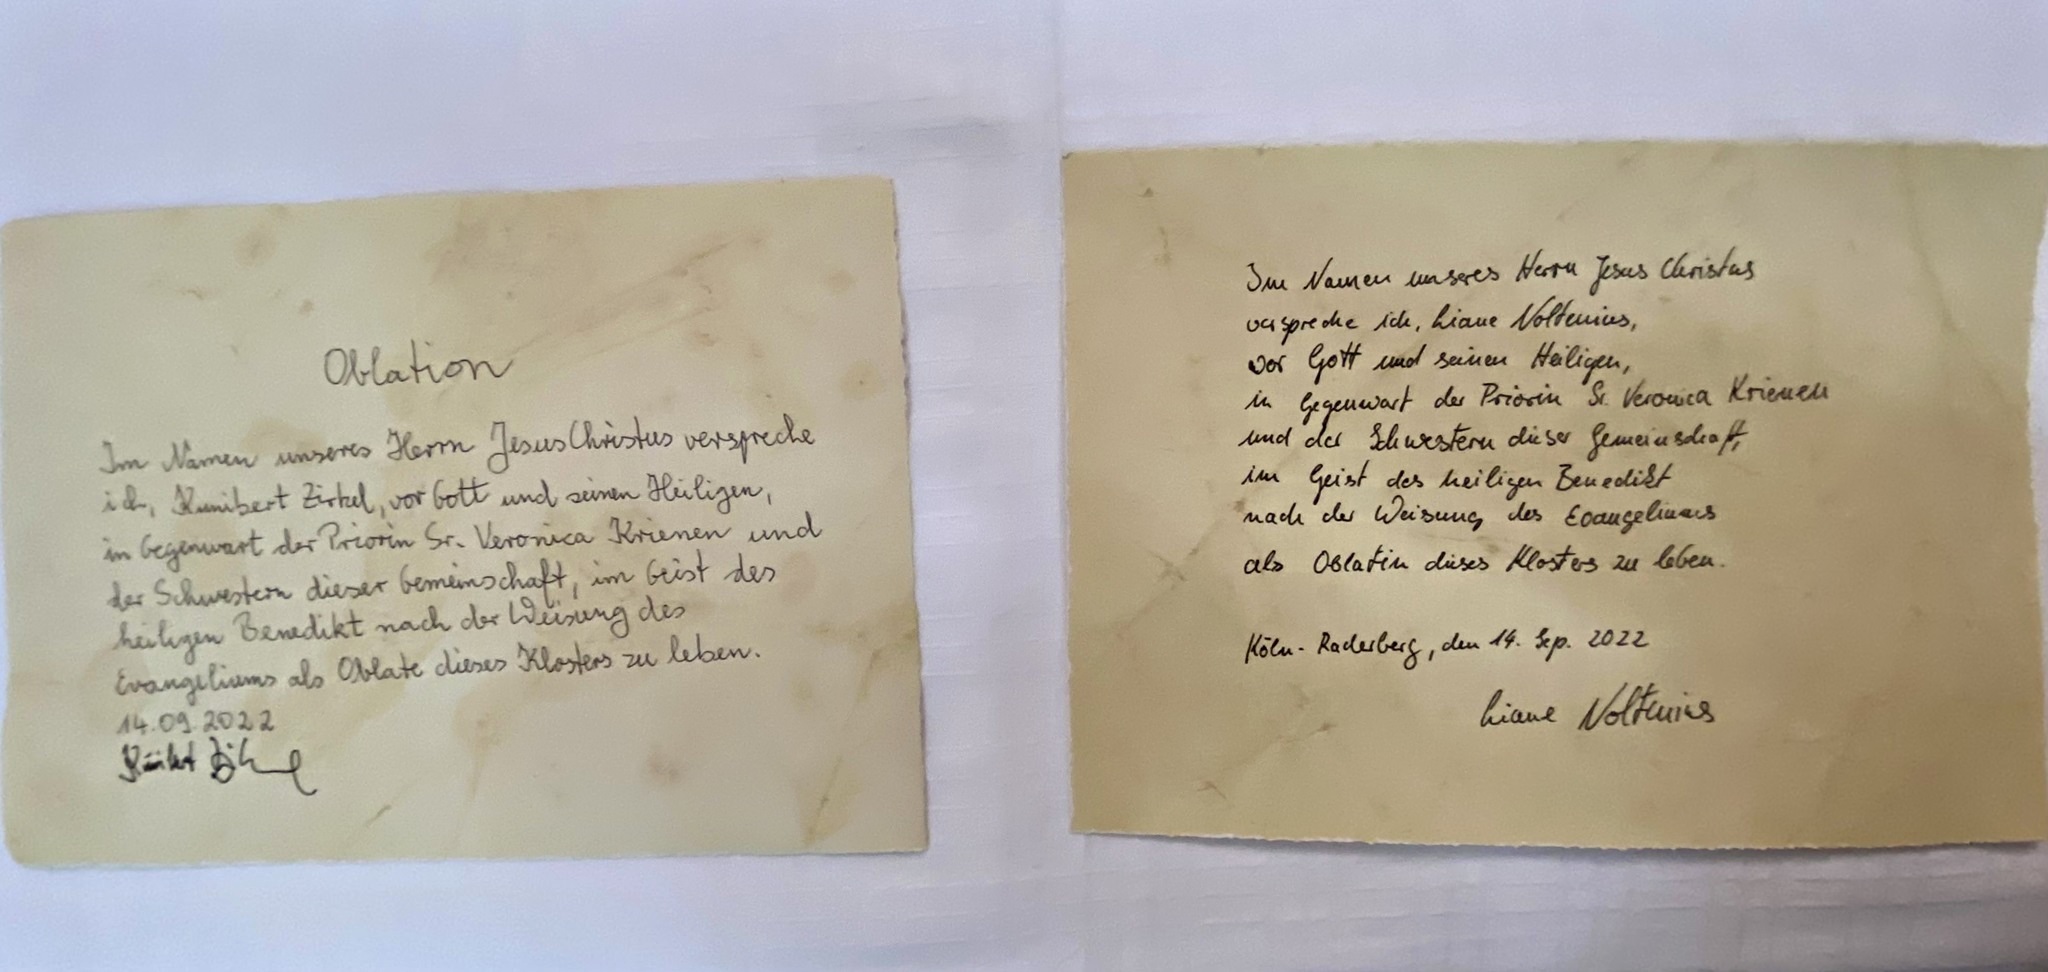 Oblation
Im Namen unseres Herrn Jesus Christus verspreche
ich, Kunibert Zirkel, vor Gott und seinen Heiligen,
in Gegenwart der Priorin Sr. Veronica Krienen und
der Schwestern dieser Gemeinschaft, im Geist des
heiligen Benedikt nach der Weisung des
Evangeliums als Oblate dieses Klosters zu leben.
14.09.2022
Im Namen unseres Herrn Jesus Christus
verspreche ich, Liane Voltenius,
vor Gott und seinen Heiligen,
in Gegenwart der Priorin Sr. Veronica Krienen
und der Schwestern dieser Gemeinschaft,
im Geist des heiligen Benedikt
nach der Weisung des Evangeliums
als Oblatin dieses Klosters zu leben.
Köln-Raderberg, den 14. Sep. 2022
Liane Voltenius